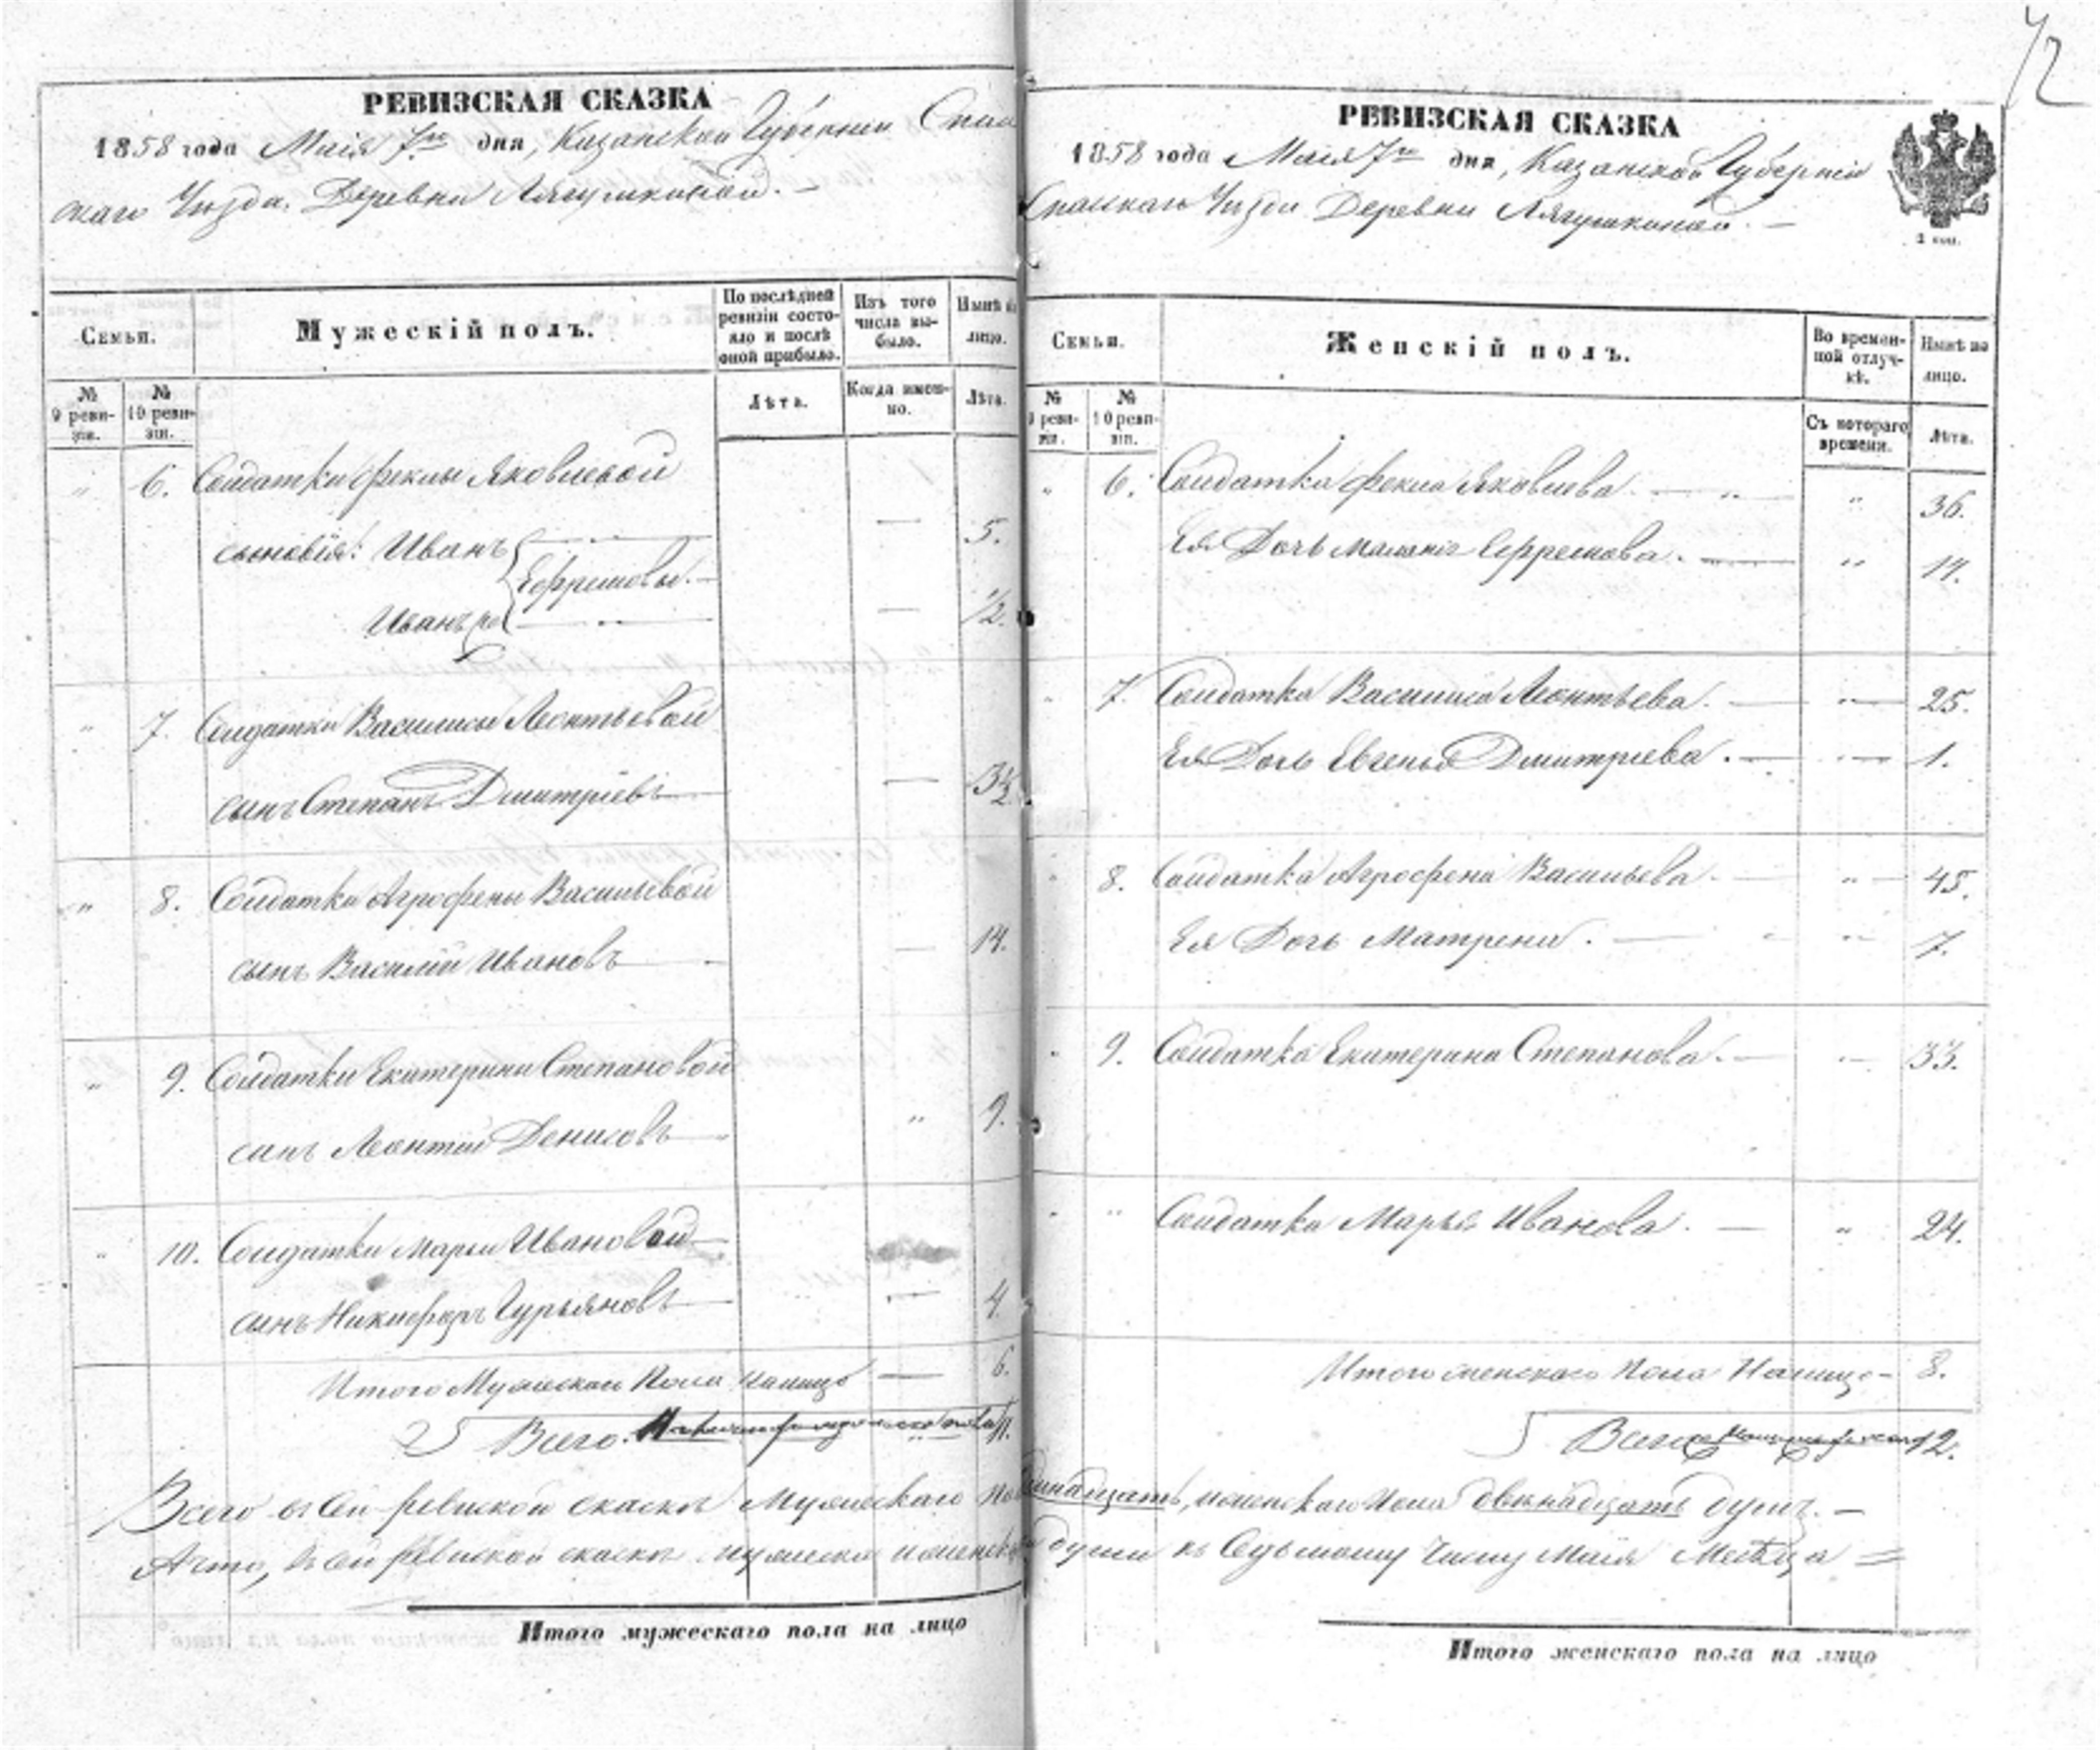 72
РЕВИЗСКАЯ СКАЗКА
1858 года Маія 7го дня, Казанской Губерніи Спас
скаго Уѣзда. Деревни Лягушкиной. –
Семьи.
Мужескій полъ.
По послѣдней ревизіи состояло и послѣ оной прибыло.
Изъ того числа выбыло.
Нынѣ на лицо.
№ 9 ревизіи.
№ 10 ревизіи.
Лѣта.
Когда именно.
Лѣта.
" 6. Солдатки Феклы Яковлевой
сыновія: Иванъ — 5.
Ефремовы. –
Иванъ — ½.
" 7. Солдатки Василисы Леонтьевой
сынъ Степанъ Дмитріевъ — 3½
" 8. Солдатки Агрофены Васильевой
сынъ Василій Ивановъ — 14.
" 9. Солдатки Екатерины Степановой
сынъ Леонтій Денисовъ " 9.
" 10. Солдатки Марьи Ивановой
сынъ Никифоръ Гурьяновъ — 4.
Итого Мужескаго Пола налицо — 6.
Всего 11.
Всего въ сей ревиской сказкѣ Мужескаго по
А что, въ сей ревиской сказкѣ мужеска и женск
Итого мужескаго пола на лицо
РЕВИЗСКАЯ СКАЗКА
1858 года Маія 7го дня, Казанской Губерніи
Спаскаго Уѣзда Деревни Лягушкиной. –
2 коп.
Семьи.
Женскій полъ.
Во временной отлучкѣ.
Нынѣ на лицо.
9 ревизіи.
№ 10 ревизіи.
Съ котораго времени.
Лѣта.
" 6. Солдатка Фекла Яковлева. — " 36.
Ея Дочь Ефремова. — " 14.
" 7. Солдатка Василиса Леонтьева. — " 25.
Ея Дочь Евгенья Дмитріева. — " 1.
" 8. Солдатка Агрофена Васильева. — " 45.
Ея Дочь Матрена. — " 7.
" 9. Солдатка Екатерина Степанова. — " 33.
" " Солдатка Марья Иванова. — " 24.
Итого женскаго пола Налицо – 8.
Всего 12.
динадцать, женскаго пола двенадцать душъ. –
души къ Седьмому Числу Маія Месяца =
Итого женскаго пола на лицо